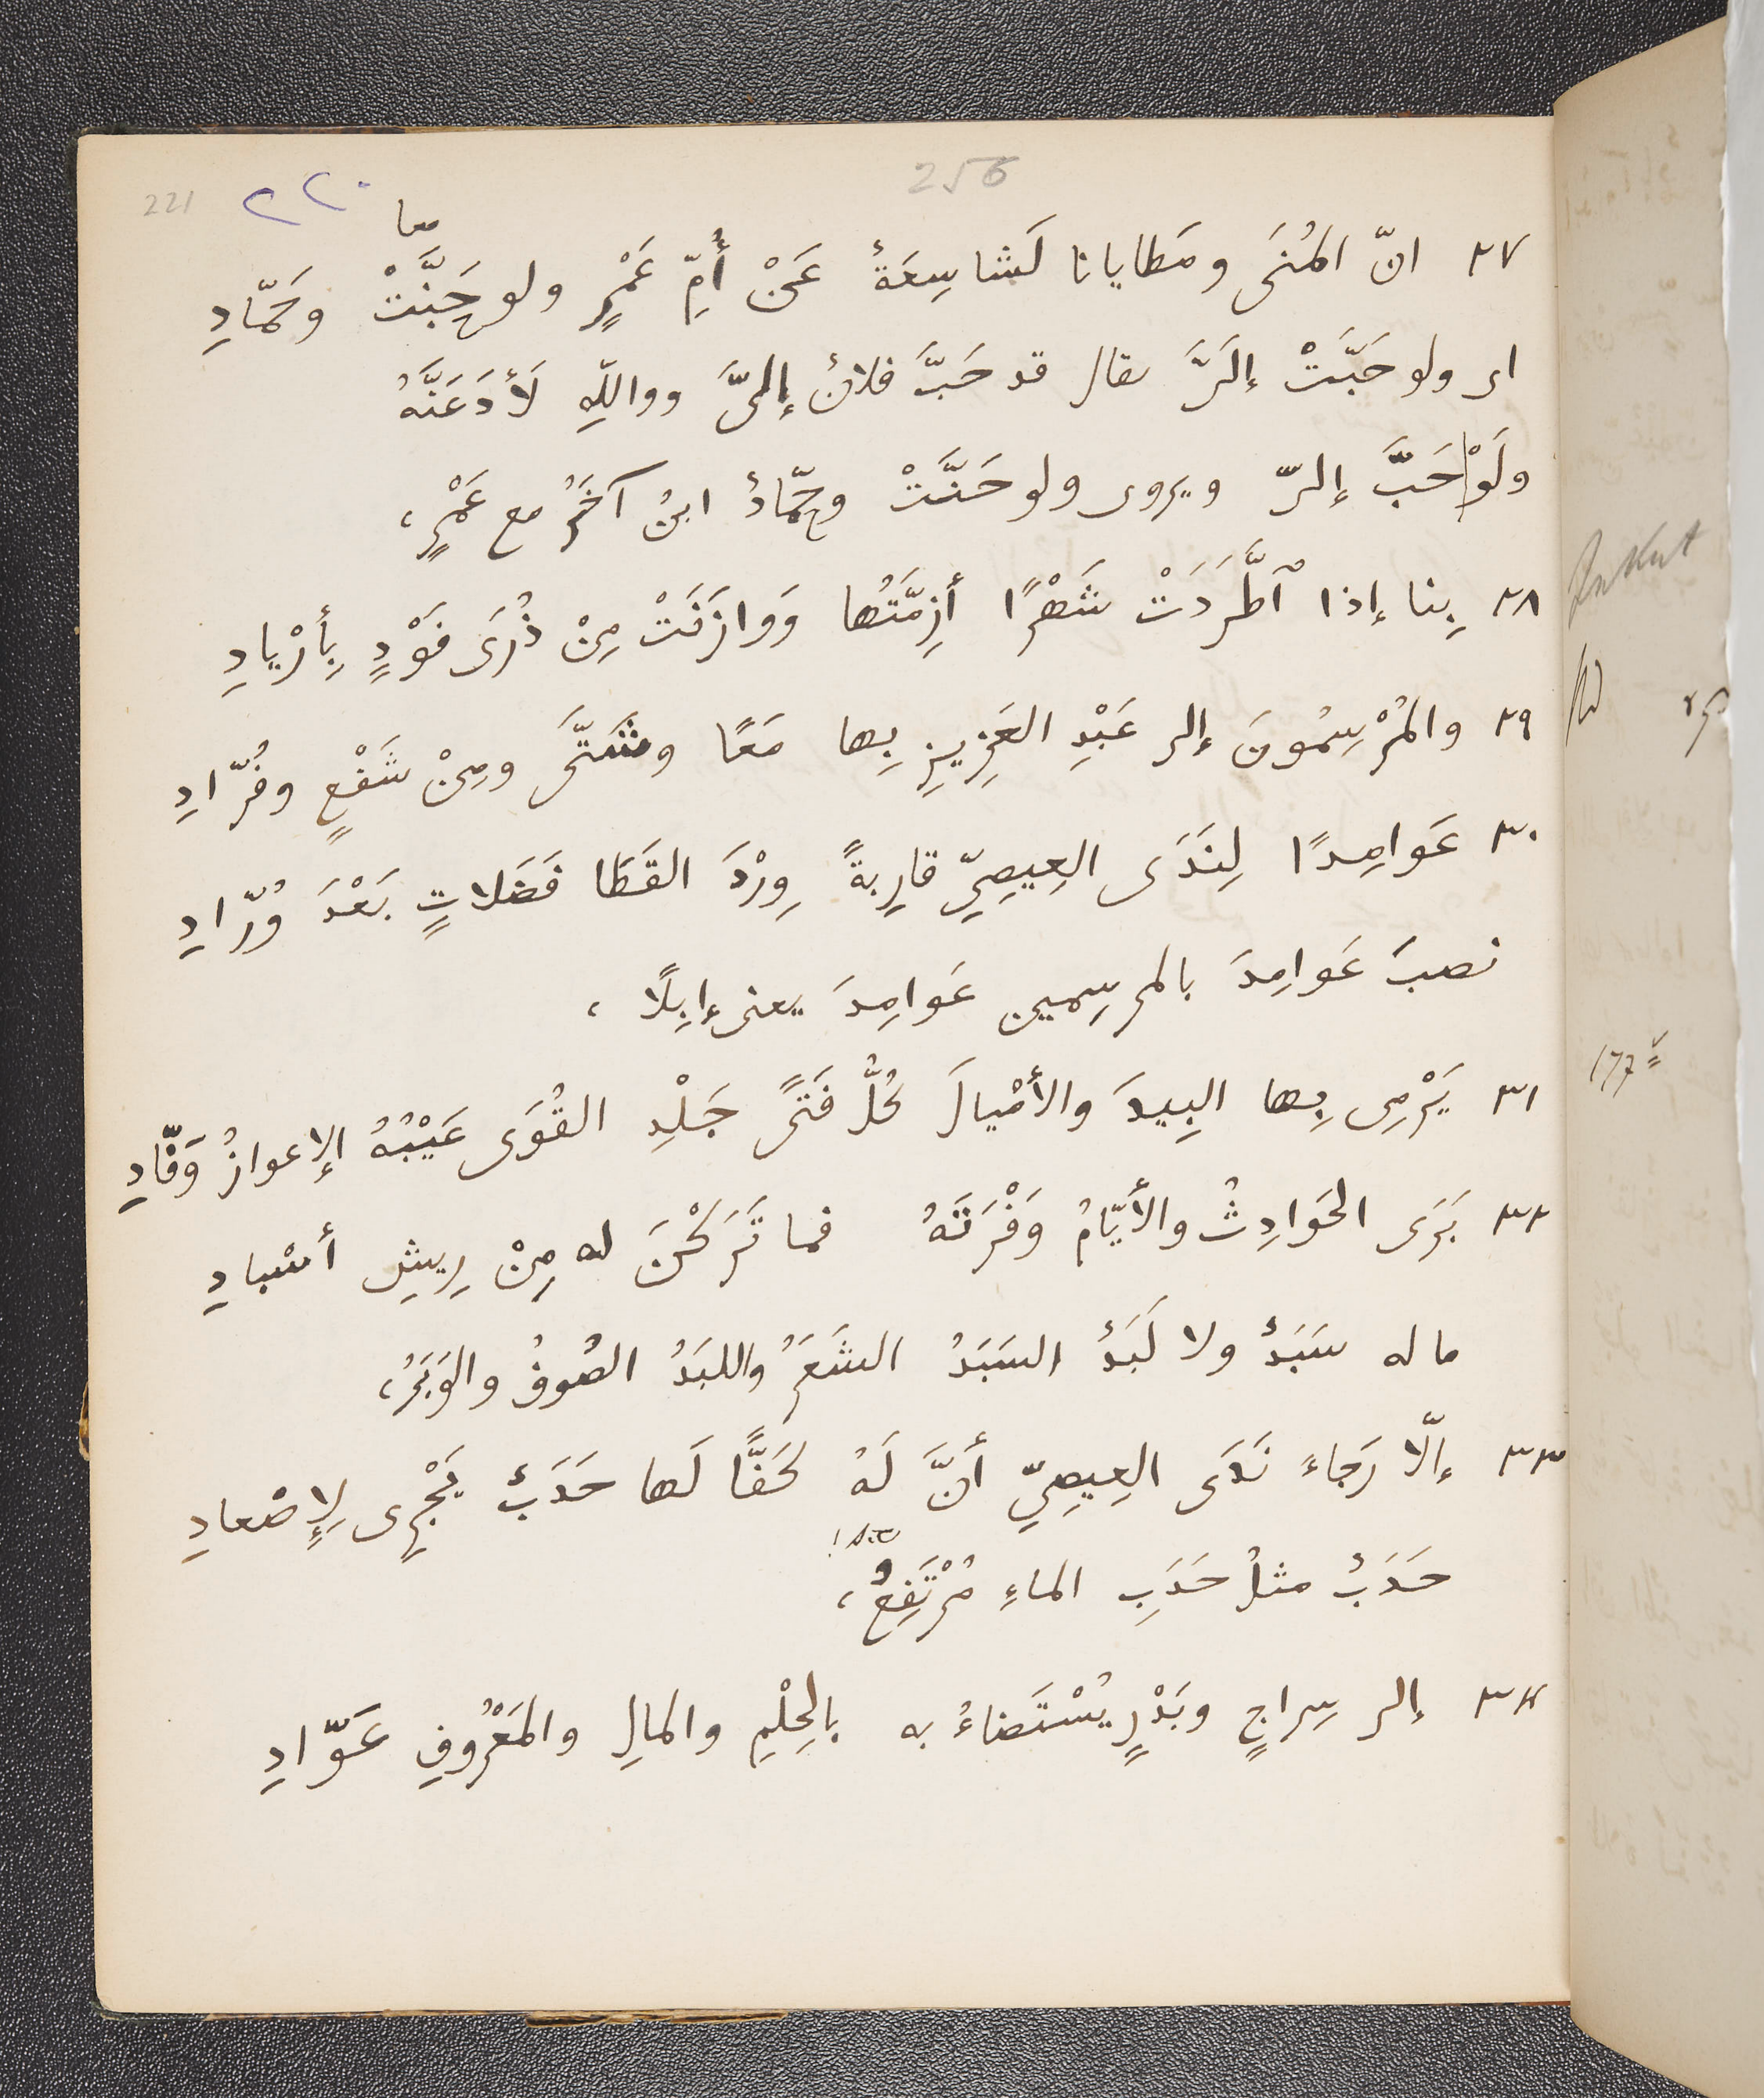 256
221 ٢٢٠
معا
٢٧ انّ المُنَى ومَطايانا لَشاسِعَةٌ عَنْ أُمِّ عَمْرٍ ولو حَبَّتْ وحَمّادِ
اى ولو حَبَّتْ إلَىَّ يقال قد حَبَّ فلانٌ إلىَّ ووالله لَأدَعَنَّهُ
ولَوْ حَبَّ إلىّ ويروى ولو حَنَّتْ وحمّادٌ ابنٌ آخَرُ مع عَمْرٍ،
٢٨ بِنا إذا ٱطَّرَدَتْ شَهْرًا أزِمَّتُها وَوازَنَتْ مِنْ ذُرَى فَوْدٍ بِأرْيادِ
٢٩ والمُرْسِمُونَ إلى عَبْدِ العَزِيزِ بِها مَعًا وشَتَّى ومِنْ شَفْعٍ وفُرّادِ
٣٠ عَوامِدًا لِنَدَى العِيصِيِّ قارِبةً وِرْدَ القَطَا فَضَلاتٍ بَعْدَ وُرّادِ
نصبَ عَوامِدَ بالمرسِمين عَوامِدَ يعنى إبِلًا،
٣١ يَرْمِى بِها البِيدَ والأمْيالَ كُلُّ فَتًى جَلْدِ القُوَى عَيْبُهُ الإعوازُ وَقّادِ
٣٢ بَرَى الحَوادِثُ والأيّامُ وَفْرَتَهُ فما تَرَكْنَ له مِنْ رِيشِ أسْبادِ
ما له سَبَدٌ ولا لَبَدٌ السَبَدُ الشَعَرُ واللبَدُ الصُوفُ والوَبَرُ،
٣٣ إلّا رَجاءَ نَدَى العِيصِيِّ أنَّ لَهُ كَفًّا لَها حَدَبٌ يَجْرِى لِإصْعادِ
sic!
حَدَبٌ مثلُ حَدَبِ الماءِ مُرْتَفِعٌ،
٣٤ إلى سِراجٍ وبَدْرٍ يُسْتَضاءُ به بالحِلْمِ والمالِ والمَعْرُوفِ عَوّادِ